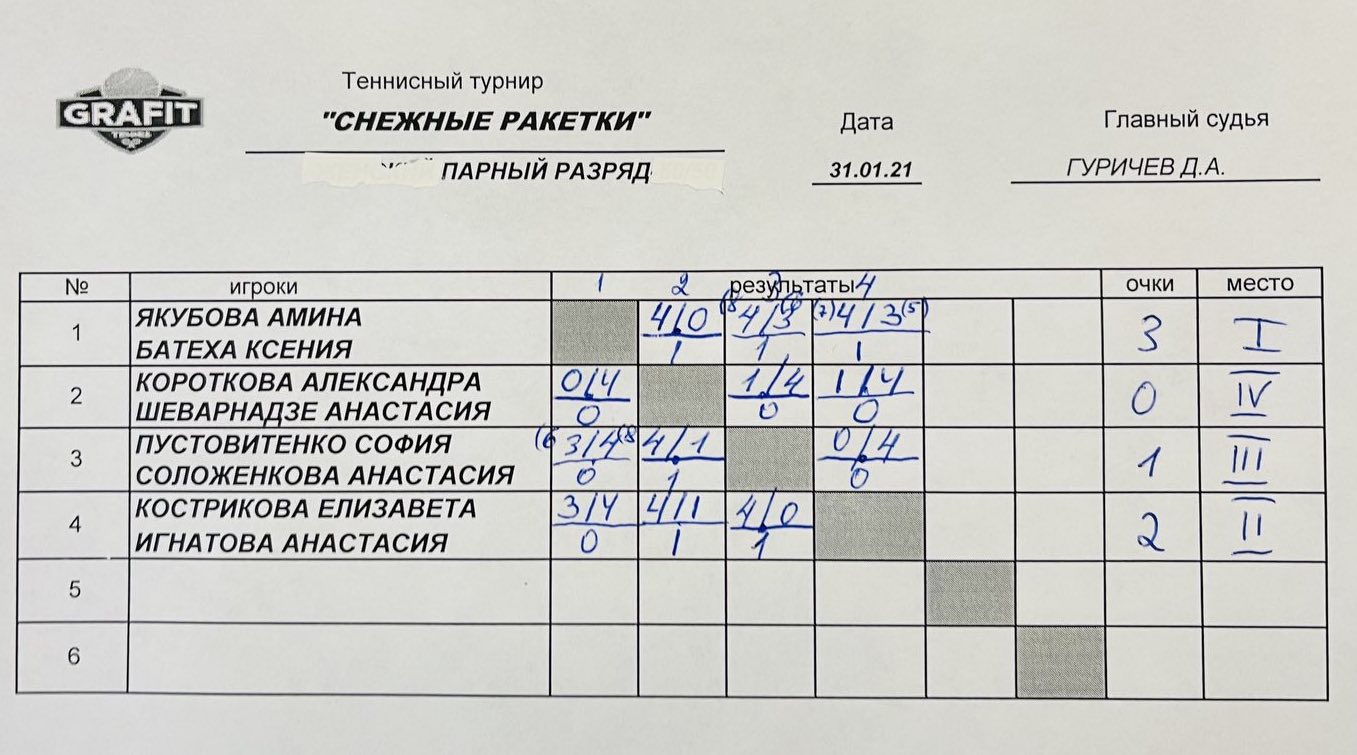 GRAFIT
TENNIS
Теннисный турнир
"СНЕЖНЫЕ РАКЕТКИ"
ПАРНЫЙ РАЗРЯД
Дата
31.01.21
Главный судья
ГУРИЧЕВ Д.А.
№ игроки 1 2 результаты 4 очки место
1 ЯКУБОВА АМИНА 4/0 (8 4/3 (6 (7) 4/3 (5) 3 I
БАТЕХА КСЕНИЯ 1 1 1
2 КОРОТКОВА АЛЕКСАНДРА 0/4 1/4 1/4 0 IV
ШЕВАРНАДЗЕ АНАСТАСИЯ 0 0 0
3 ПУСТОВИТЕНКО СОФИЯ (6 3/4 (8 4/1 0/4 1 III
СОЛОЖЕНКОВА АНАСТАСИЯ 0 1 0
4 КОСТРИКОВА ЕЛИЗАВЕТА 3/4 4/1 4/0 2 II
ИГНАТОВА АНАСТАСИЯ 0 1 1
5
6